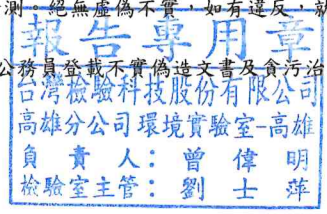 測。絕無虛偽不實，如有違反，就
報告專用章
公務員登載不實偽造文書及貪污治
台灣檢驗科技股份有限公司
高雄分公司環境實驗室-高雄
負責人：曾偉明
檢驗室主管：劉士萍